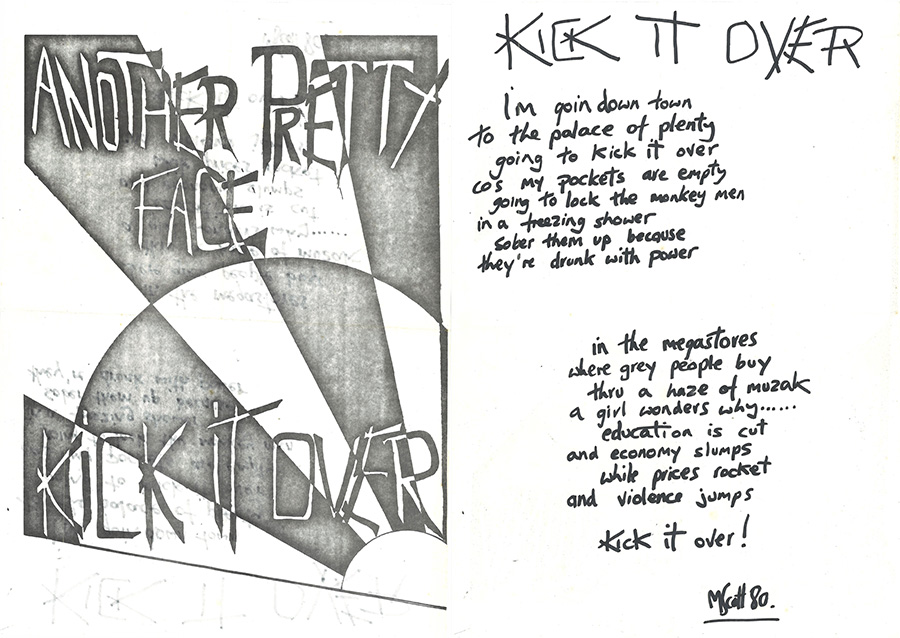 ANOTHER PRETTY
FACE
KICK IT OVER
KICK IT OVER
I'm goin down town
to the palace of plenty
going to kick it over
cos my pockets are empty
going to lock the monkey men
in a freezing shower
sober them up because
they're drunk with power
in the megastores
where grey people buy
thru a haze of muzak
a girl wonders why......
education is cut
and economy slumps
while prices rocket
and violence jumps
Kick it over!
MScott 80.